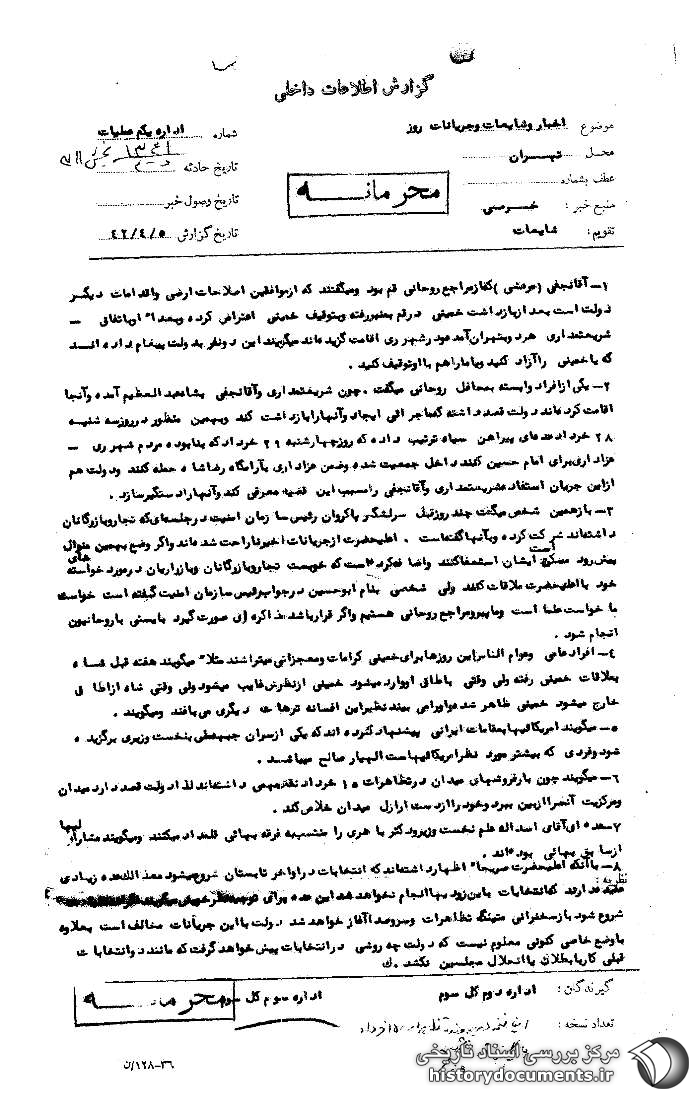 گزارش اطلاعات داخلی
موضوع اخبار و شایعات و جریانات روز
شماره اداره یکم عملیات
محل تهران
تاریخ حادثه
عطف بشماره
محرمانه
تاریخ وصول خبر
منبع خبر: خرسی
تاریخ گزارش ۴۲/۴/۵
تقویم: شایعات
۱- آقانجفی (مرعشی) که از مراجع روحانی قم بود و میگفتند که از موافقین اصلاحات ارضی و اقدامات دیگر
دولت است بعد از بازداشت خمینی در قم بمنبر رفته و بتوقیف خمینی اعتراض کرده و بعداً باتفاق —
شریعتمداری هر دو بتهران آمده و در شهر ری اقامت گزیده‌اند میگویند این دو نفر به دولت پیغام داده اند
که یا خمینی را آزاد کنید و یا ما را هم با او توقیف کنید.
۲- یکی از افراد وابسته بمحافل روحانی میگفت. چون شریعتمداری و آقانجفی بشاه عبدالعظیم آمده و آنجا
اقامت کرده‌اند دولت قصد داشته که ماجرائی ایجاد و آنها را بازداشت کند و بهمین منظور در روز سه شنبه
۲۸ خرداد عده‌ای پیراهن سیاه ترتیب داده که روز چهارشنبه ۲۹ خرداد که بنا بوده مردم شهر ری —
عزاداری برای امام حسین کنند داخل جمعیت شده و ضمن عزاداری بآرامگاه رضا شاه حمله کنند و دولت هم
از این جریان استفاده و شریعتمداری و آقانجفی را مسبب این قضیه معرفی کند و آنها را دستگیر سازد.
۳- باز همین شخص میگفت چند روز قبل سرلشگر پاکروان رئیس سازمان امنیت در جلسه‌ای که تجار و بازرگانان
داشته‌اند شرکت کرده و بآنها گفته است. اعلیحضرت از جریانات اخیر ناراحت شده‌اند و اگر وضع بهمین منوال
پیش رود ممکن است ایشان استعفا کنند و اضافه کرده است که خوبست تجار و بازرگانان و بازاریان در مورد خواسته های
خود با اعلیحضرت ملاقات کنند ولی شخصی بنام ابوحسین در جواب رئیس سازمان امنیت گفته است خواست
ما خواست علما است و ما پیرو مراجع روحانی هستیم و اگر قرار باشد مذاکره ای صورت گیرد بایستی با روحانیون
انجام شود.
۴- افراد عامی و عوام الناس این روزها برای خمینی کرامات و معجزاتی میتراشند مثلاً میگویند هفته قبل شاه
بملاقات خمینی رفته ولی وقتی باطاق او وارد میشود خمینی از نظرش غایب میشود ولی وقتی شاه از اطاق
خارج میشود خمینی ظاهر شده و او را می بیند نظیر این افسانه ترهات دیگری می بافند و میگویند.
۵- میگویند امریکائیها بمقامات ایرانی پیشنهاد کرده اند که یکی از سران جبهه ملی بنخست وزیری برگزیده
شود و فردی که بیشتر مورد نظر امریکائیهاست الهیار صالح میباشد.
۶- میگویند چون بارفروشهای میدان در تظاهرات ۱۵ خرداد نقش مهمی داشته‌اند لذا دولت قصد دارد میدان
و مرکزیت آنرا از بین ببرد و خود را از دست اراذل میدان خلاص کند.
۷- عده ای آقای اسداله علم نخست وزیر و دکتر باهری را منتسب به فرقه بهائی قلمداد میکنند و میگویند مشارالیها
از سابق بهائی بوده اند.
۸- با آنکه اعلیحضرت صریحاً اظهار داشته‌اند که انتخابات در اواخر تابستان شروع میشود معذالک عده زیادی
نظریه: عقیده دارند که انتخابات باین زودیها انجام نخواهد شد این عده برای
شروع شود باز سخنرانی متینگ تظاهرات و سر و صدا آغاز خواهد شد دولت با این جریانات مخالف است بعلاوه
با وضع خاص کنونی معلوم نیست که دولت چه روشی در انتخابات پیش خواهد گرفت که مانند دو انتخابات
قبلی کار بابطال یا انحلال مجلسین نکشد. ك
گیرندگان: اداره دوم کل سوم اداره سوم کل سوم
محرمانه
تعداد نسخه:
۳۶-۱۲۸/ن
مرکز بررسی اسناد تاریخی
historydocuments.ir